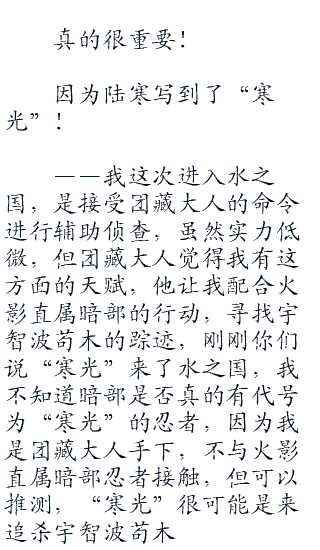 真的很重要！
因为陆寒写到了“寒
光”！
——我这次进入水之
国，是接受团藏大人的命令
进行辅助侦查，虽然实力低
微，但团藏大人觉得我有这
方面的天赋，他让我配合火
影直属暗部的行动，寻找宇
智波苟木的踪迹，刚刚你们
说“寒光”来了水之国，我
不知道暗部是否真的有代号
为“寒光”的忍者，因为我
是团藏大人手下，不与火影
直属暗部忍者接触，但可以
推测，“寒光”很可能是来
追杀宇智波苟木